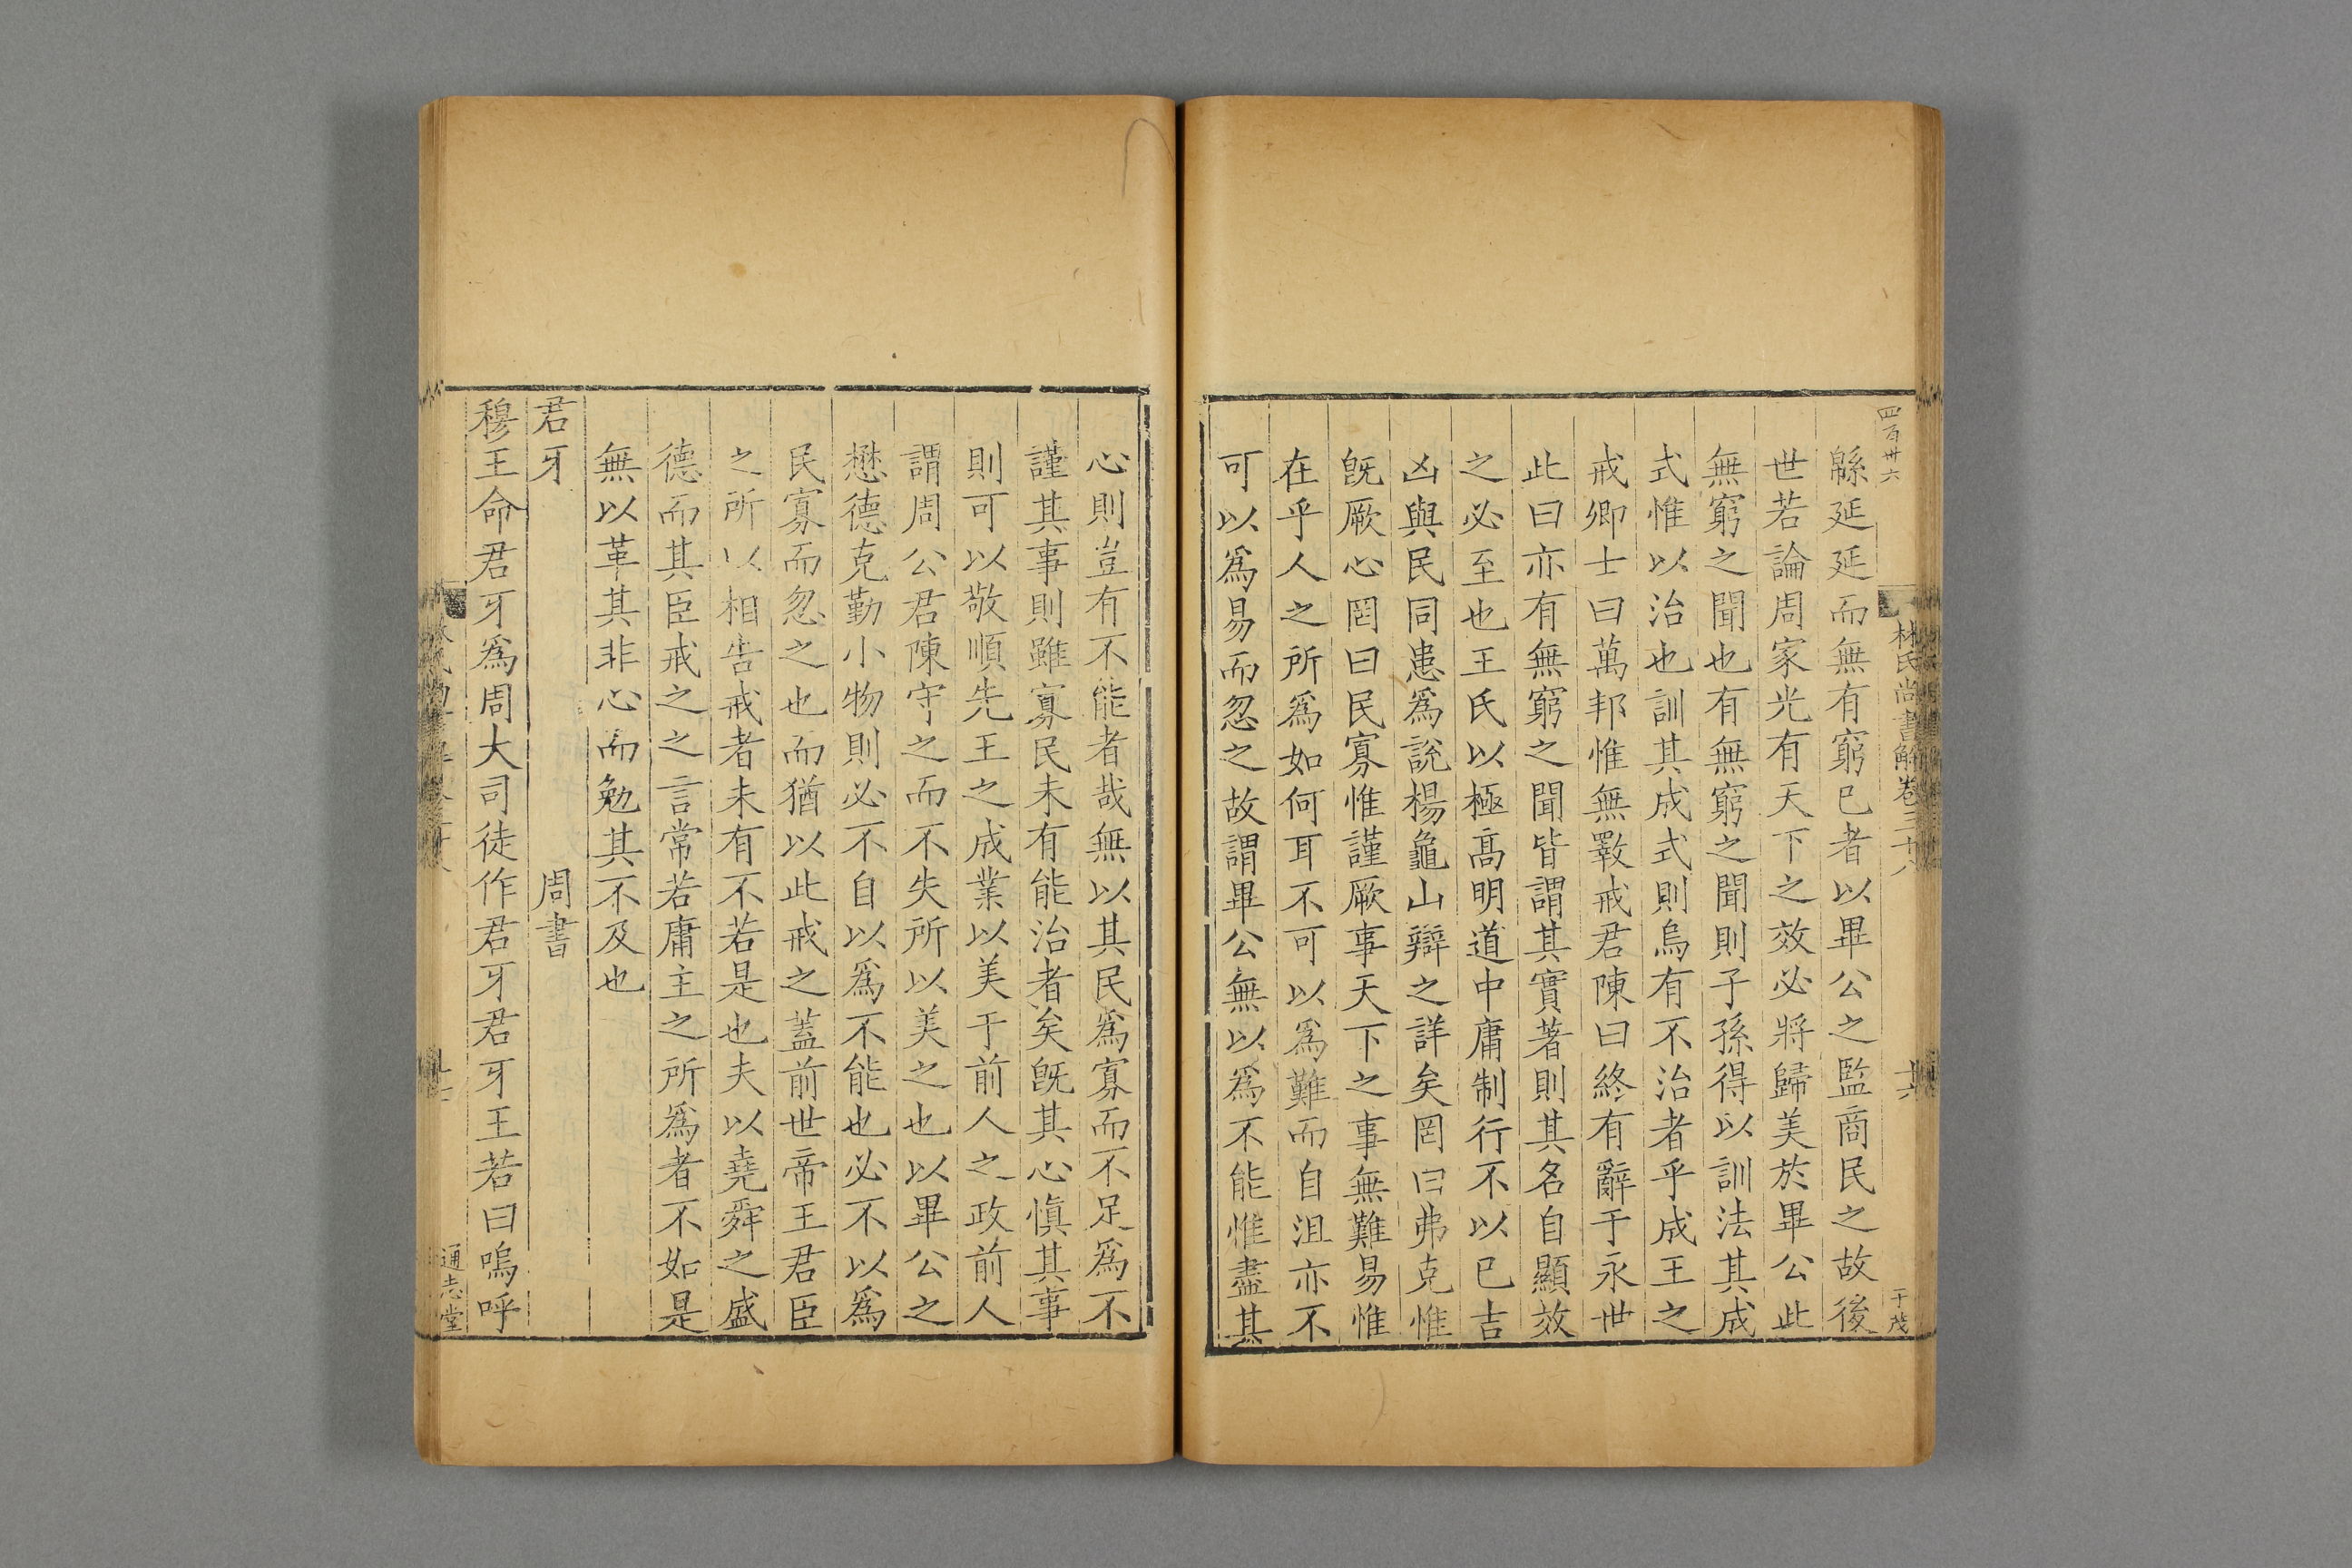 四百卅六
林氏尚書解卷三十八
十六
于茂
緜延延而無有窮已者以畢公之監商民之故後
世若論周家光有天下之效必將歸美於畢公此
無窮之聞也有無窮之聞則子孫得以訓法其成
式惟以治也訓其成式則烏有不治者乎成王之
戒卿士曰萬邦惟無斁戒君陳曰終有辭于永世
此曰亦有無窮之聞皆謂其實著則其名自顯效
之必至也王氏以極高明道中庸制行不以已吉
凶與民同患為說楊龜山辯之詳矣罔曰弗克惟
旣厥心罔曰民寡惟謹厥事天下之事無難易惟
在乎人之所為如何耳不可以為難而自沮亦不
可以為易而忽之故謂畢公無以為不能惟盡其
心則豈有不能者哉無以其民為寡而不足為不
謹其事則雖寡民未有能治者矣旣其心慎其事
則可以敬順先王之成業以美于前人之政前人
謂周公君陳守之而不失所以美之也以畢公之
懋德克勤小物則必不自以為不能也必不以為
民寡而忽之也而猶以此戒之蓋前世帝王君臣
之所以相告戒者未有不若是也夫以堯舜之盛
德而其臣戒之之言常若庸主之所為者不如是
無以革其非心而勉其不及也
君牙　周書
穆王命君牙為周大司徒作君牙君牙王若曰嗚呼
通志堂